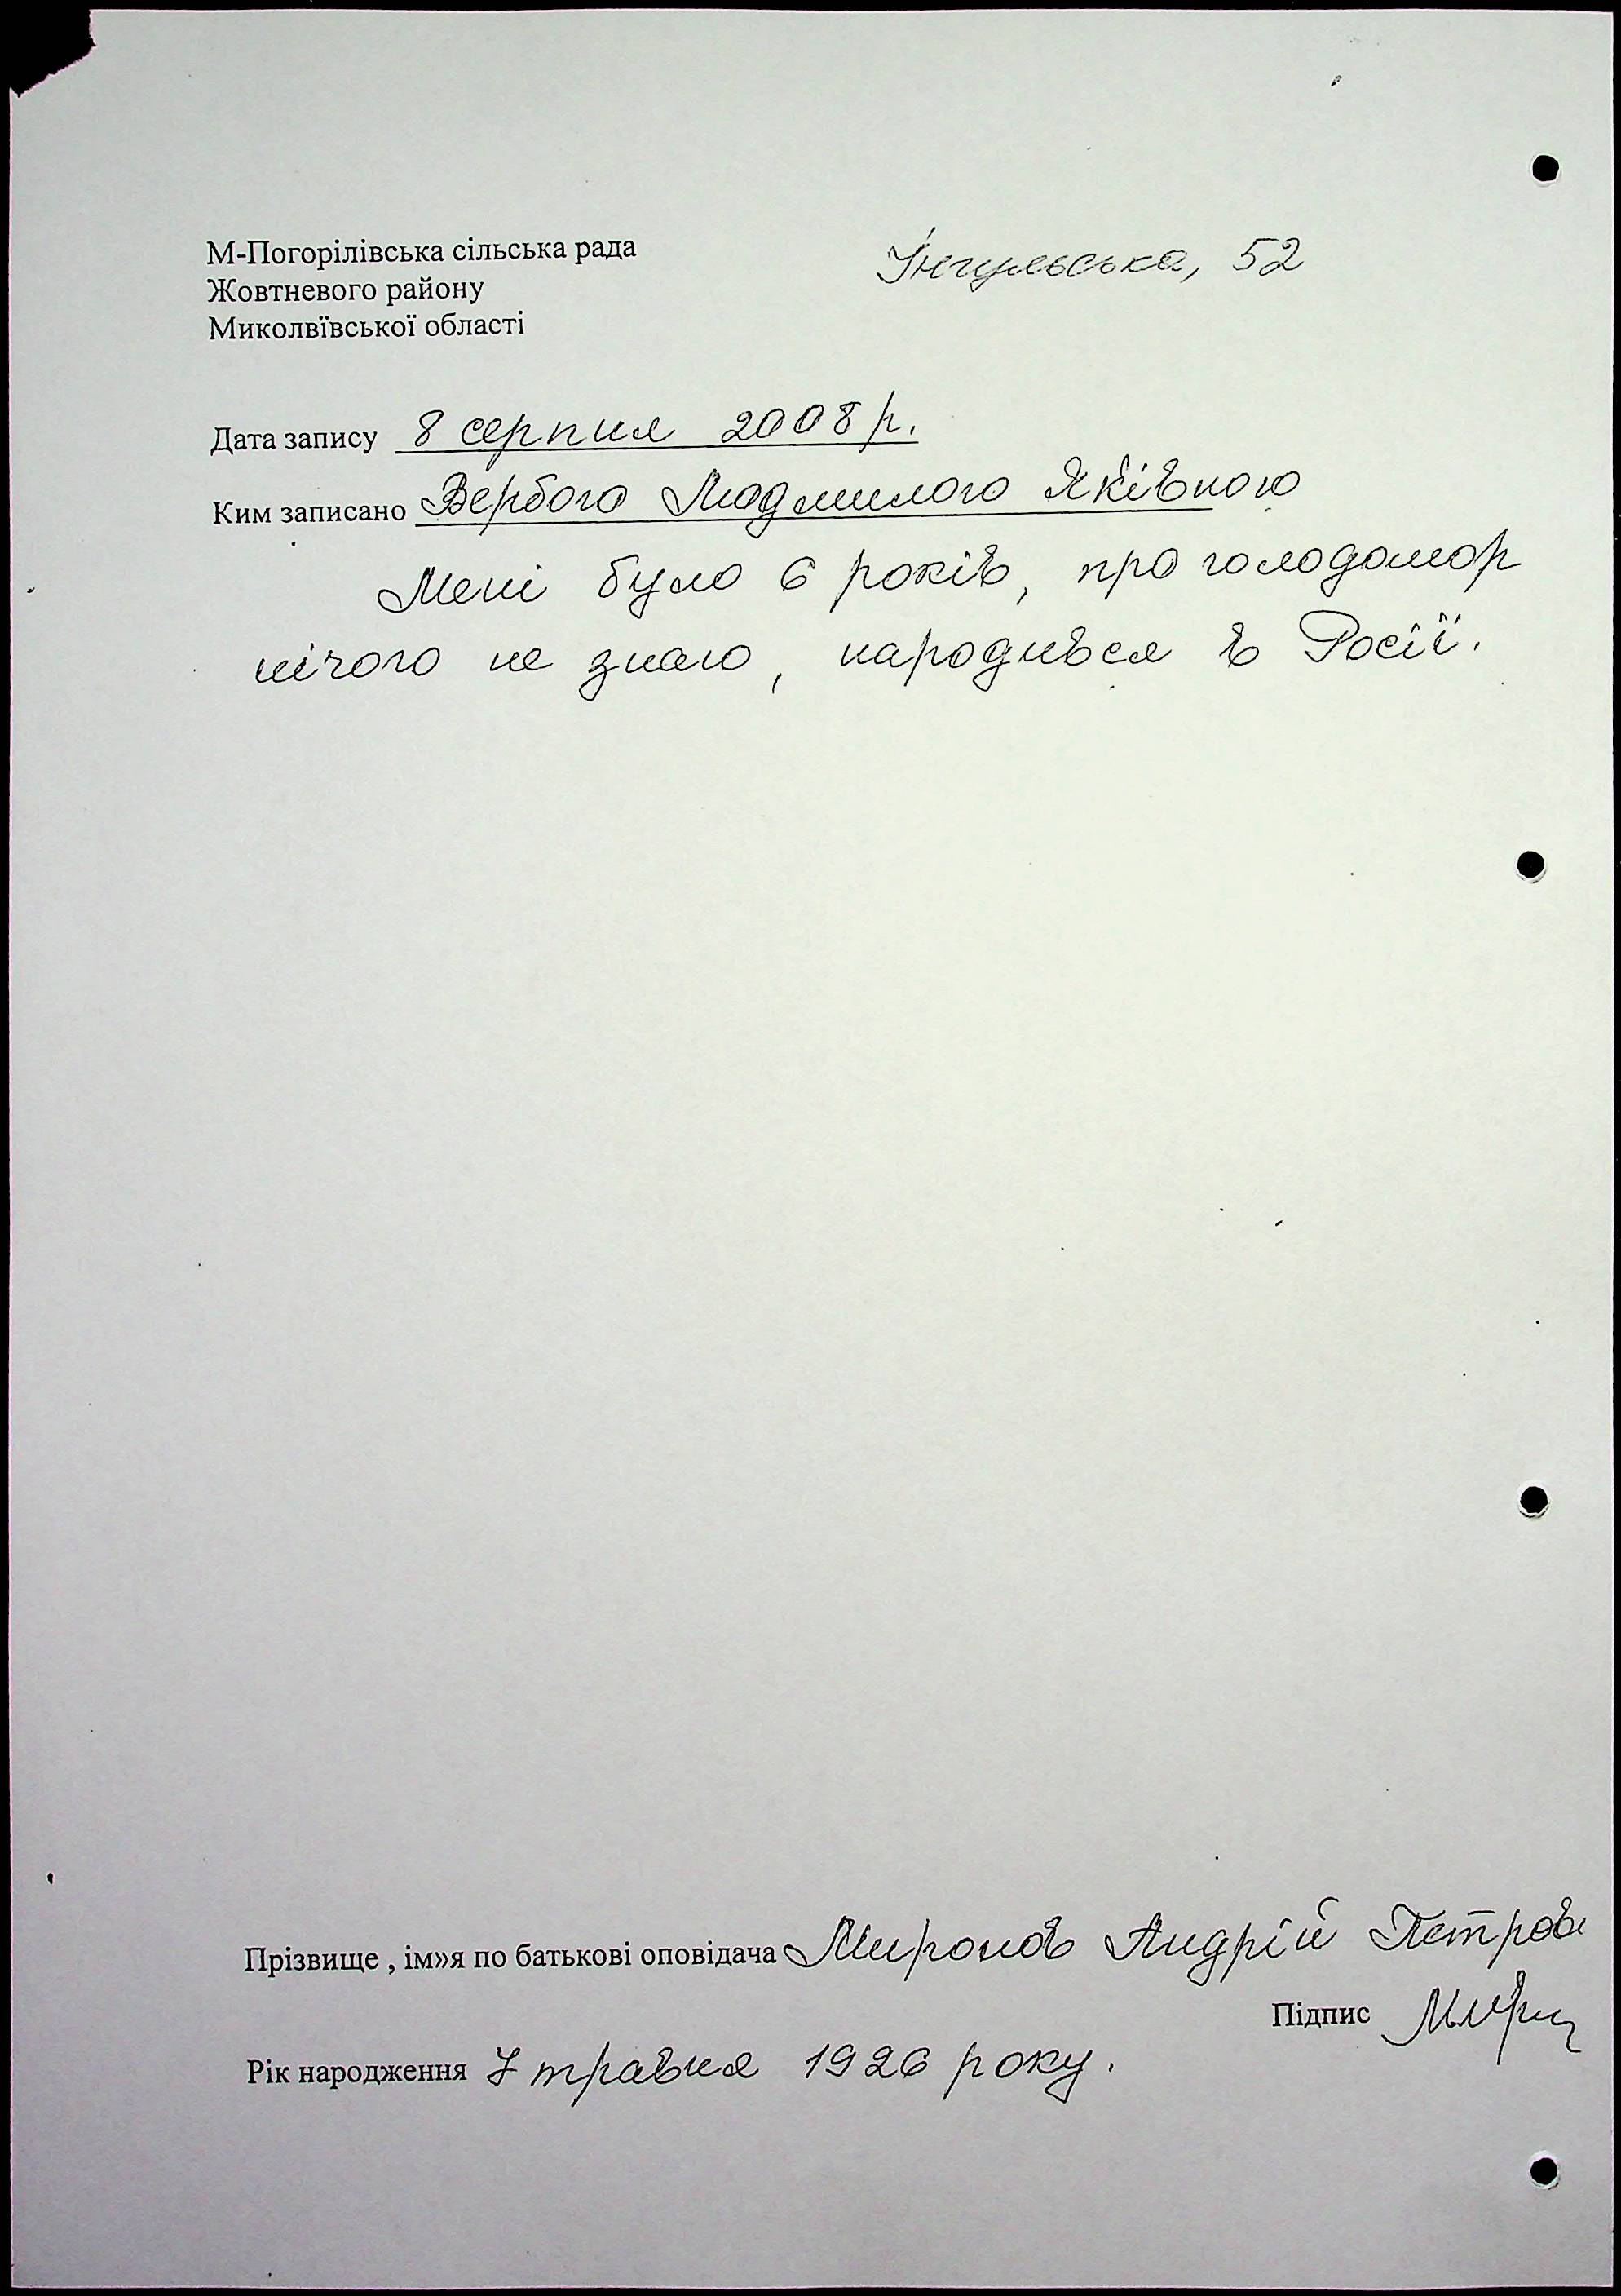 М-Погорілівська сільська рада
Інгульська, 52
Жовтневого району
Миколвївської області
Дата запису 8 серпня 2008 р.
Ким записано Вербою Людмилою Яківною
Мені було 6 років, про голодомор
нічого не знаю, народився в Росії.
Прізвище , ім»я по батькові оповідача Миронов Андрій Петрови
Підпис
Рік народження 7 травня 1926 року.